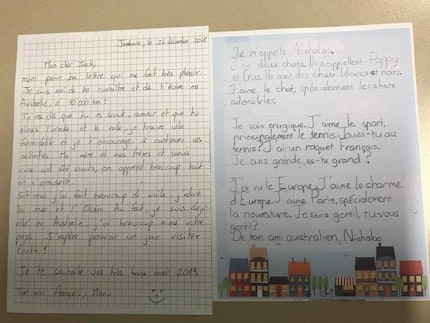 Jordanie, le 26 décembre 2018
Mon cher Jack,
merci pour ta lettre qui me fait très plaisir.
Je suis ravi de te connaître et de t'écrire en
Australie, à 10 000 km!
Tu me dis que tu es scout, rameur et que tu
aimes l'aviron et la voile, je trouve cela
formidable et je t'encourage à continuer ces
activités. Ma mère et mes frères et soeurs
aussi ont été scouts, on apprend beaucoup tout
en s'amusant.
Et moi j'ai fait beaucoup de voile, j'adore
la mer et l'Océan. Au fait je suis déjà
allé en Australie, j'ai beaucoup aimé votre
pays. J'espère pouvoir un jour visiter
Je te souhaite une très bonne année 2019
Ton ami français, Manu
Je m'appelle Nicholas.
J'ai deux chats. Ils s'appellent Poppy
et Gus. Ils sont des chats blancs et noirs.
J'aime le chat, spécialement les chats
adorables.
Je suis énergique. J'aime le sport,
principalement le tennis. Joues-tu au
tennis? J'ai un raquet français.
Je suis grande, es-tu grand?
J'ai vu le Europe. J'aime le charme
d'Europe. J'aime Paris, spécialement
la nourriture. Je suis gentil, tu vous
gentil?
De ton ami australien, Nicholas